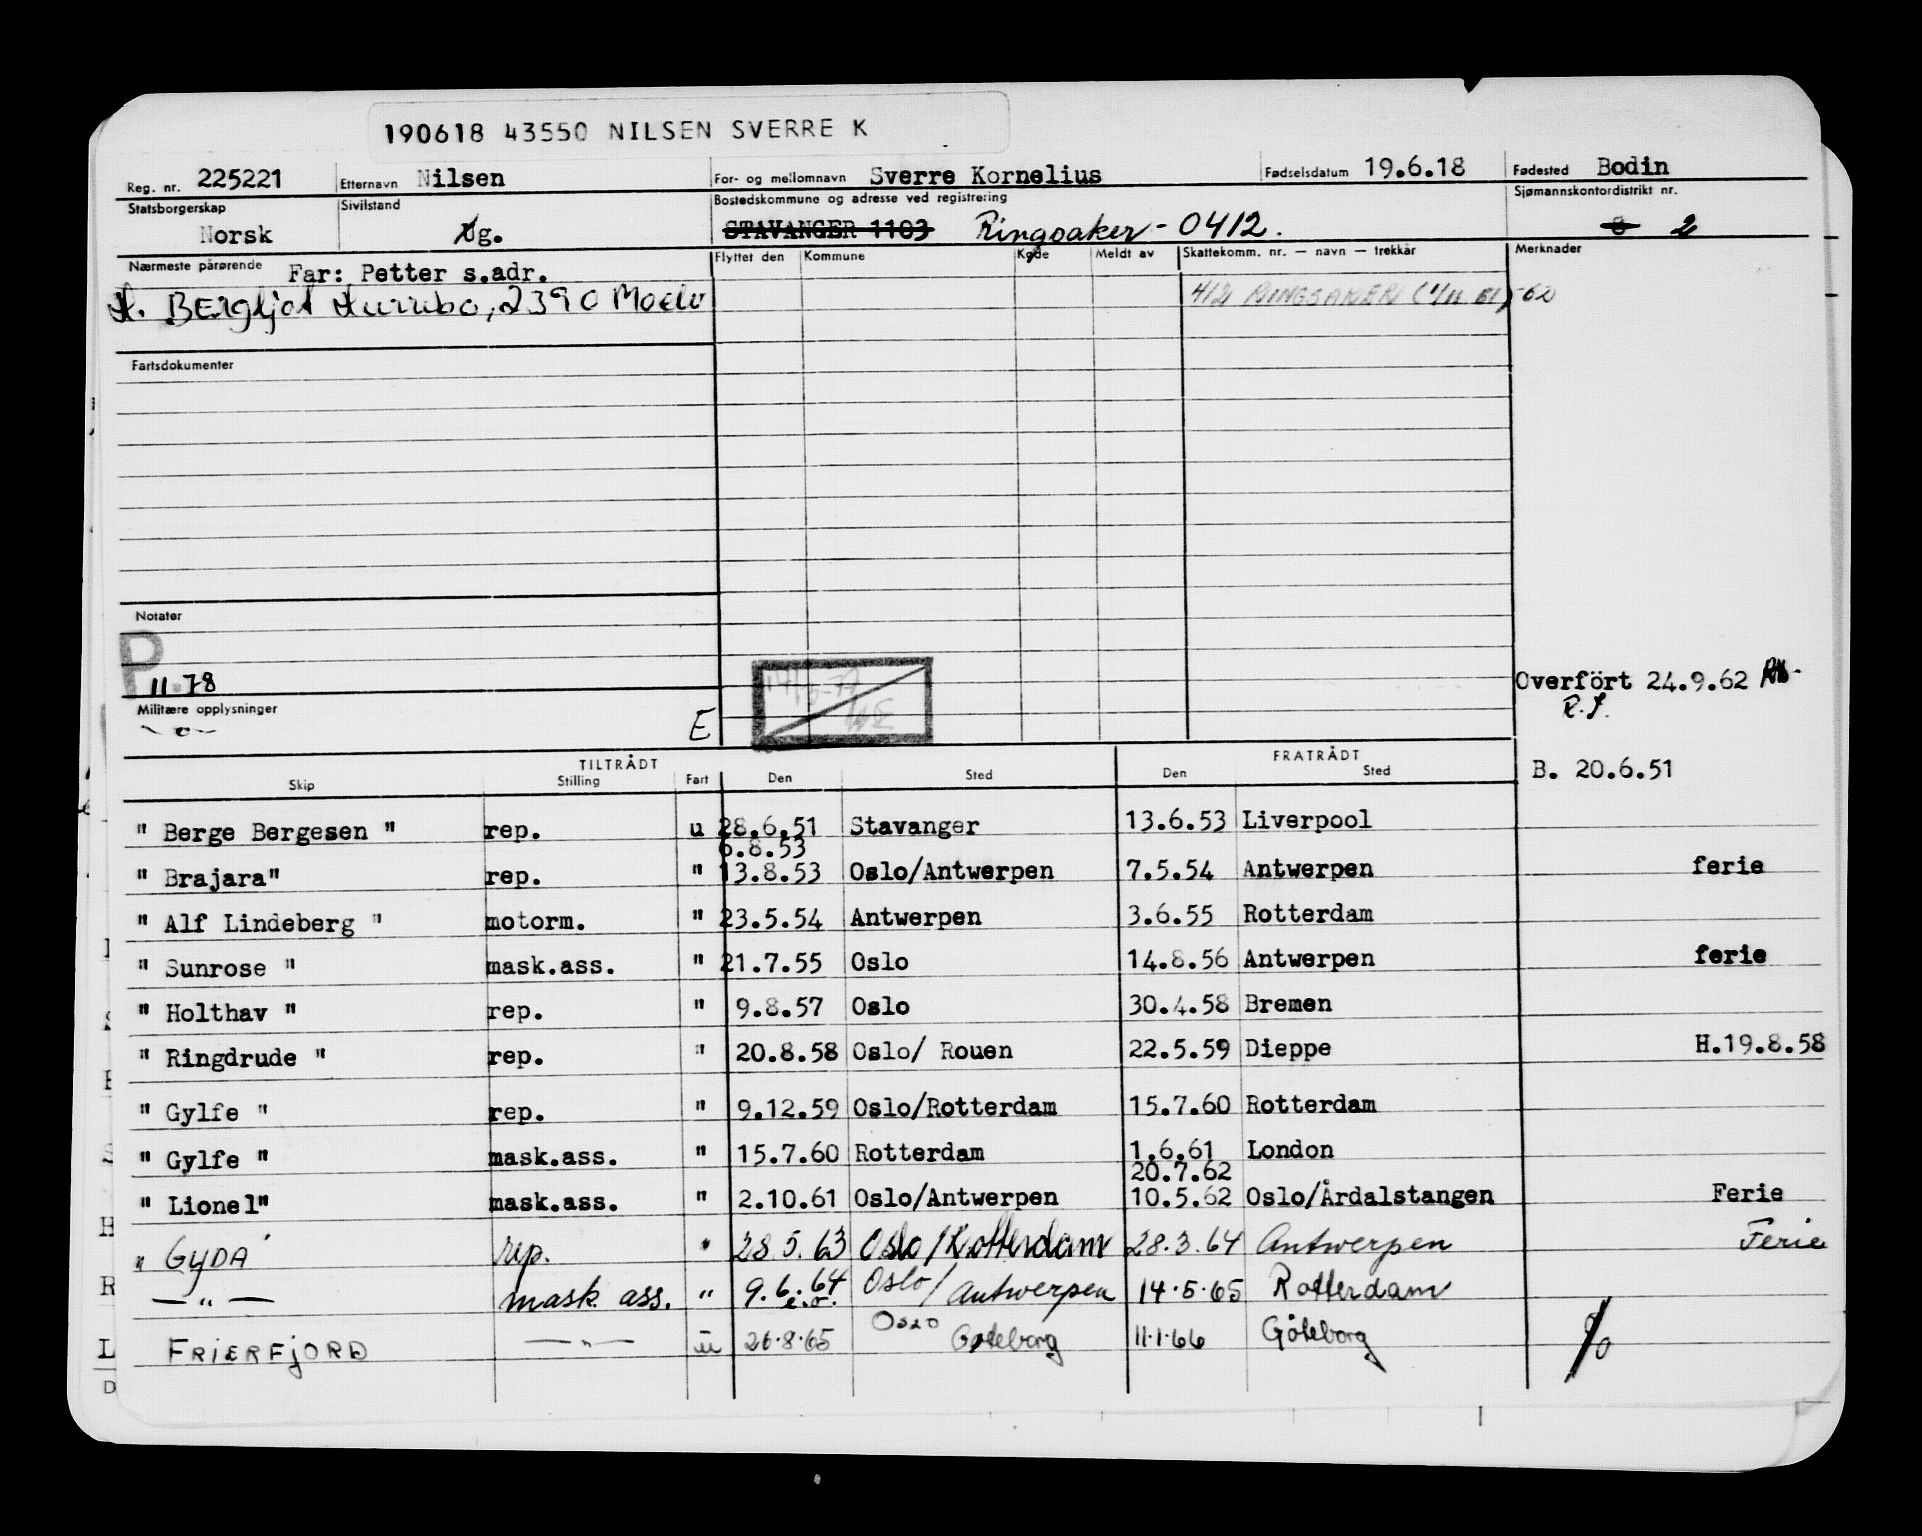 190618 43550 NILSEN SVERRE K
Reg. nr. 225221 Etternavn Nilsen For- og mellomnavn Sverre Kornelius Fødselsdatum 19.6.18 Fødested Bodin
Statsborgerskap Sivilstand Bostedskommune og adresse ved registrering Sjømannskontordistrikt nr.
Norsk Ug. STAVANGER 1103 Ringsaker - 0412. 8 2
Nærmeste pårørende Far: Petter s.adr. Flyttet den Kommune Kode Meldt av Skattekomm. nr. — navn — trekkår Merknader
H. Bergljot 2390 Moelv 412 RINGSAKER (1/11 61) -62
Fartsdokumenter
Notater
P
11.78
Overført 24.9.62
R.S.
Militære opplysninger
E
TILTRÅDT FRATRÅDT
Skip Stilling Fart Den Sted Den Sted
B. 20.6.51
" Berge Bergesen " rep. u 28.6.51 Stavanger 13.6.53 Liverpool
6.8.53
" Brajara" rep. " 13.8.53 Oslo/Antwerpen 7.5.54 Antwerpen ferie
" Alf Lindeberg " motorm. " 23.5.54 Antwerpen 3.6.55 Rotterdam
" Sunrose " mask.ass. " 21.7.55 Oslo 14.8.56 Antwerpen ferie
" Holthav " rep. " 9.8.57 Oslo 30.4.58 Bremen
" Ringdrude " rep. " 20.8.58 Oslo/ Rouen 22.5.59 Dieppe H.19.8.58
" Gylfe " rep. " 9.12.59 Oslo/Rotterdam 15.7.60 Rotterdam
" Gylfe " mask.ass. " 15.7.60 Rotterdam 1.6.61 London
20.7.62
" Lionel" mask.ass. " 2.10.61 Oslo/Antwerpen 10.5.62 Oslo/Årdalstangen Ferie
" GYDA rep. " 28.5.63 Oslo/Rotterdam 28.3.64 Antwerpen Ferie
— " — mask ass. " 9.6.64 Oslo/Antwerpen 14.5.65 Rotterdam
e.o.
FRIERFJORD — " — u 26.8.65 Oslo Gøteborg 11.1.66 Göteborg %